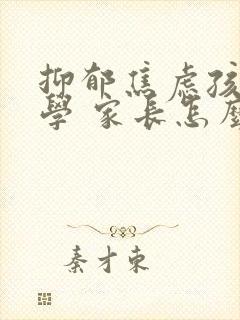 抑郁焦虑孩
學 家長怎麼
秦才東